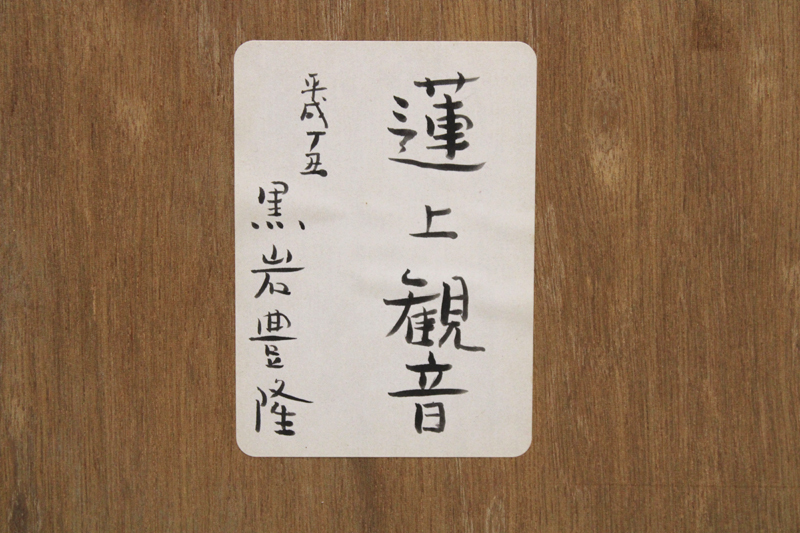 蓮上観音
平成丁丑
黒岩豊隆